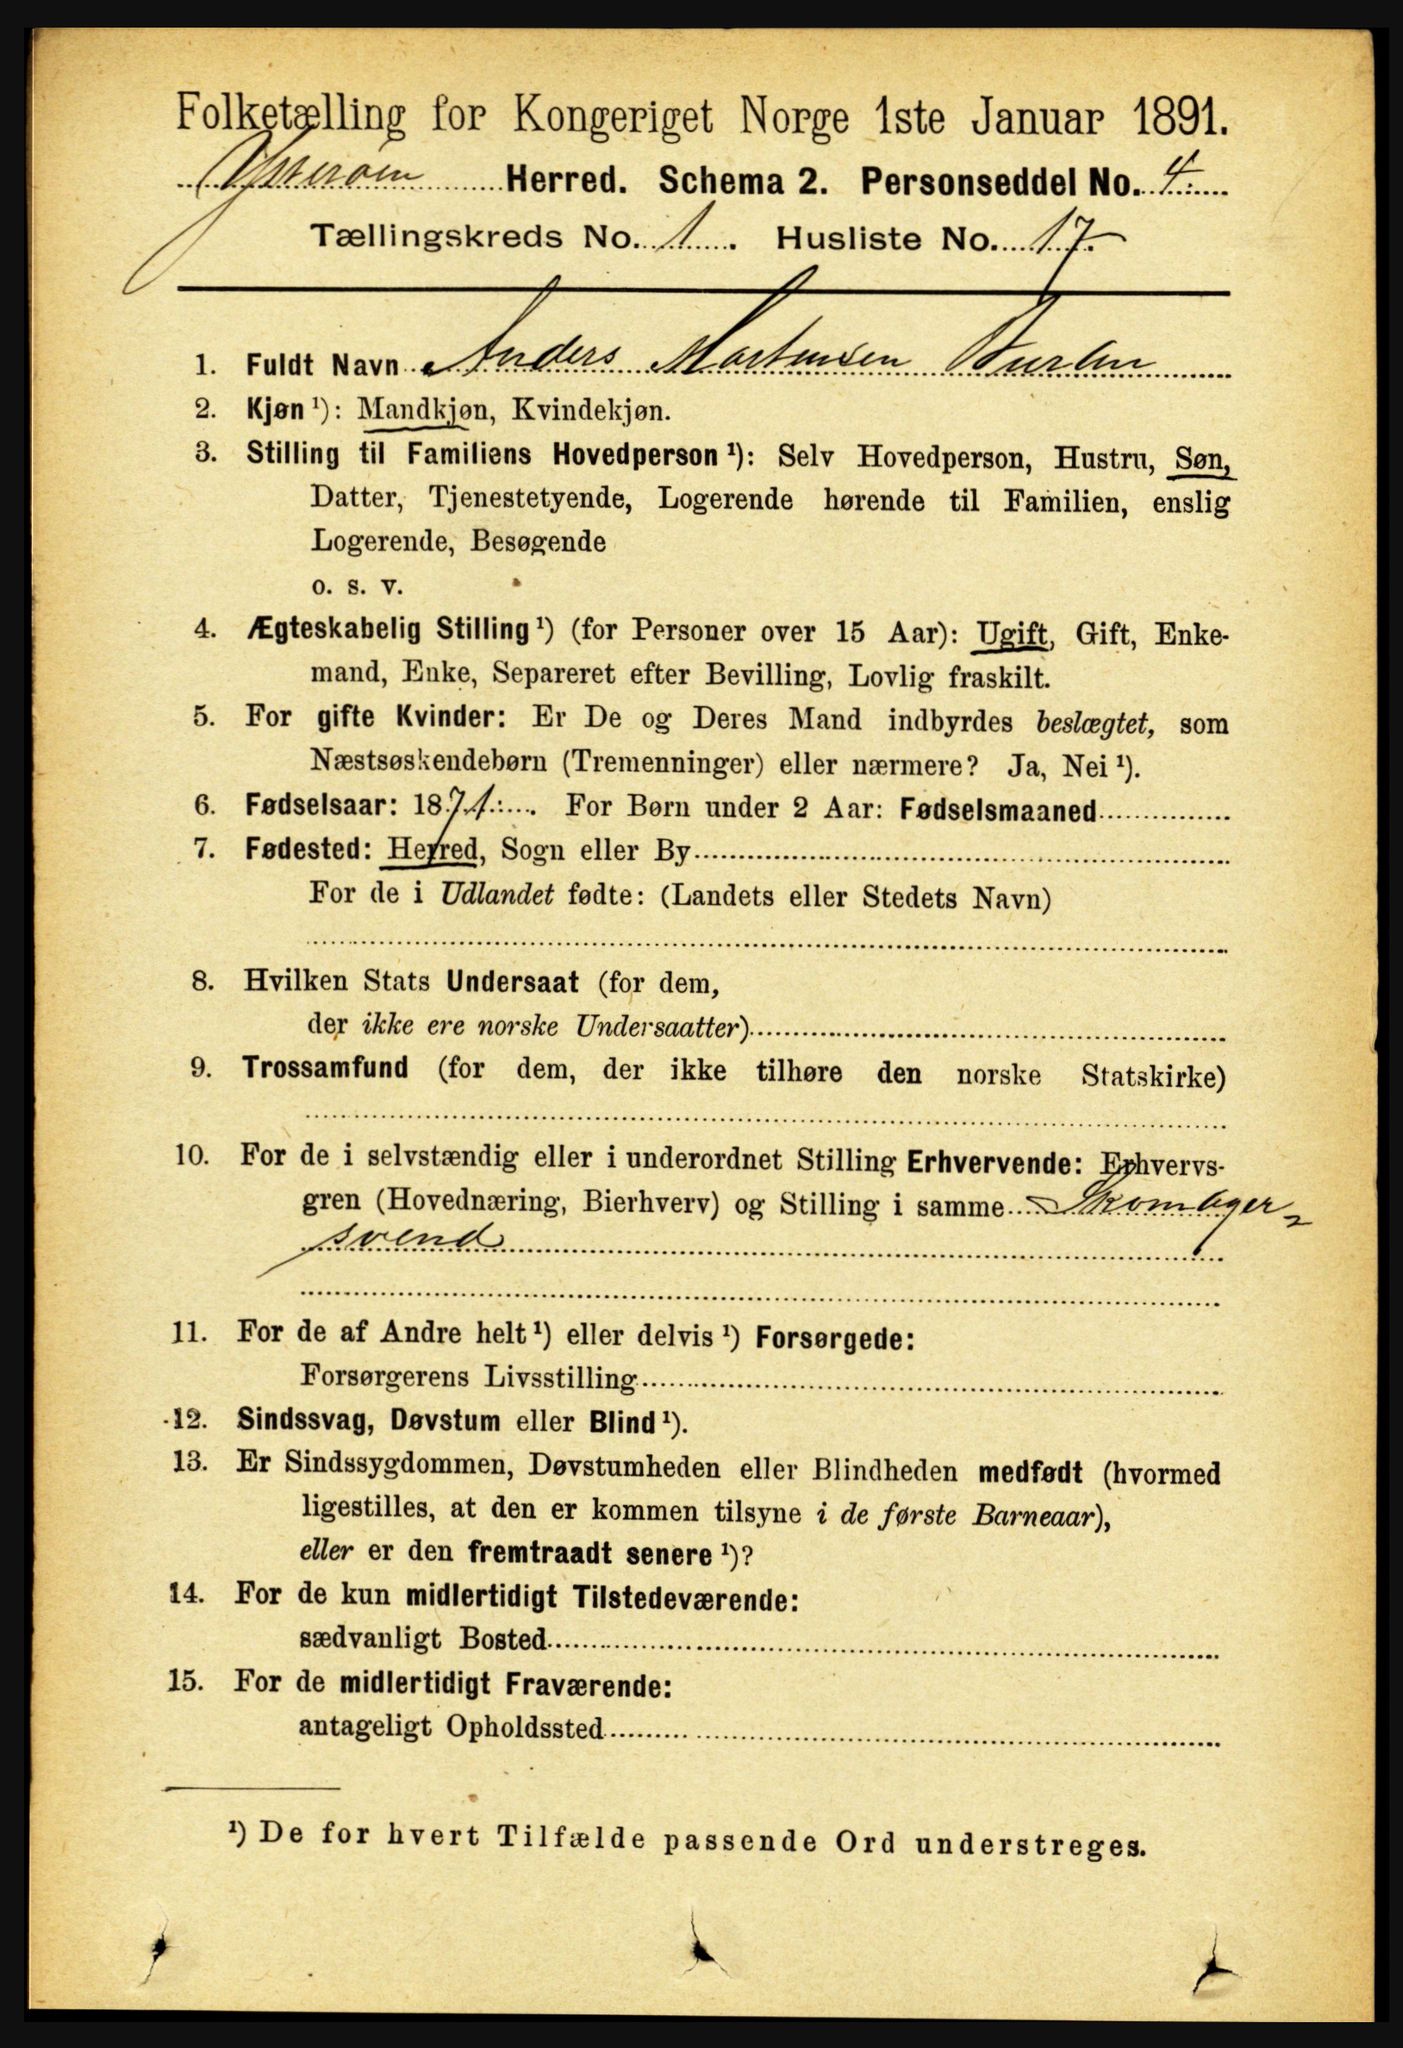 Folketælling for Kongeriget Norge 1ste Januar 1891.
Ytterøen Herred. Schema 2. Personseddel No. 4.
Tællingskreds No. 1. Husliste No. 17.
1. Fuldt Navn Anders Martinsen
2. Kjøn ¹): Mandkjøn, Kvindekjøn.
3. Stilling til Familiens Hovedperson ¹): Selv Hovedperson, Hustru, Søn,
Datter, Tjenestetyende, Logerende hørende til Familien, enslig
Logerende, Besøgende
o. s. v.
4. Ægteskabelig Stilling ¹) (for Personer over 15 Aar): Ugift, Gift, Enke-
mand, Enke, Separeret efter Bevilling, Lovlig fraskilt.
5. For gifte Kvinder: Er De og Deres Mand indbyrdes beslægtet, som
Næstsøskendebørn (Tremenninger) eller nærmere? Ja, Nei ¹).
6. Fødselsaar: 1871. For Børn under 2 Aar: Fødselsmaaned
7. Fødested: Herred, Sogn eller By
For de i Udlandet fødte: (Landets eller Stedets Navn)
8. Hvilken Stats Undersaat (for dem,
der ikke ere norske Undersaatter)
9. Trossamfund (for dem, der ikke tilhøre den norske Statskirke)
10. For de i selvstændig eller i underordnet Stilling Erhvervende: Erhvervs-
gren (Hovednæring, Bierhverv) og Stilling i samme Skomager-
svend
11. For de af Andre helt ¹) eller delvis ¹) Forsørgede:
Forsørgerens Livsstilling
12. Sindssvag, Døvstum eller Blind ¹).
13. Er Sindssygdommen, Døvstumheden eller Blindheden medfødt (hvormed
ligestilles, at den er kommen tilsyne i de første Barneaar),
eller er den fremtraadt senere ¹)?
14. For de kun midlertidigt Tilstedeværende:
sædvanligt Bosted
15. For de midlertidigt Fraværende:
antageligt Opholdssted
¹) De for hvert Tilfælde passende Ord understreges.